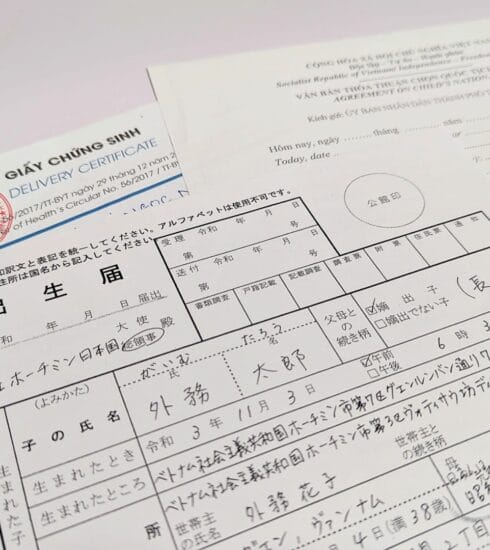 CỘNG HÒA XÃ HỘI CHỦ NGHĨA VIỆT NAM
Độc lập - Tự do - Hạnh phúc
Socialist Republic of Vietnam Independence - Freedom
VĂN BẢN THỎA THUẬN CHỌN QUỐC TỊCH
AGREEMENT ON CHILD'S NATION
Kính gửi: ỦY BAN NHÂN DÂN THÀNH PHỐ
Hôm nay, ngày tháng năm
Today, date or
GIẤY CHỨNG SINH
DELIVERY CERTIFICATE
/2017/TT-BYT ngày 29 tháng 12 năm 2
of Health's Circular No. 56/2017 /TT-BY
公館印
和訳文と表記を統一してください。アルファベットは使用不可です。
住所は国名から記入してください。
出生届
令和 年 月 日 届出
ホーチミン日本国総領事
大使 殿
受理 令和 年 月 日
第 号
送付 令和 年 月 日
第 号
書類調査 戸籍記載 記載調査 調査票 附票 住民票 通知
生まれた子
(よみかた) がいむ たろう
子の氏名 外務 太郎
氏 名
父母との続き柄
☑嫡出子
□嫡出でない子
(長
生まれたとき 令和 3年 11月 3日
☑午前
□午後
6時 3
生まれたところ ベトナム社会主義共和国ホーチミン市第7区グエンルンバン通り7
所 ベトナム社会主義共和国ホーチミン市第3区ヴォティサウ坊デ
世帯主の氏名 外務 花子
世帯主との続き柄
ヴァンナム
4日(満38歳)
2丁目